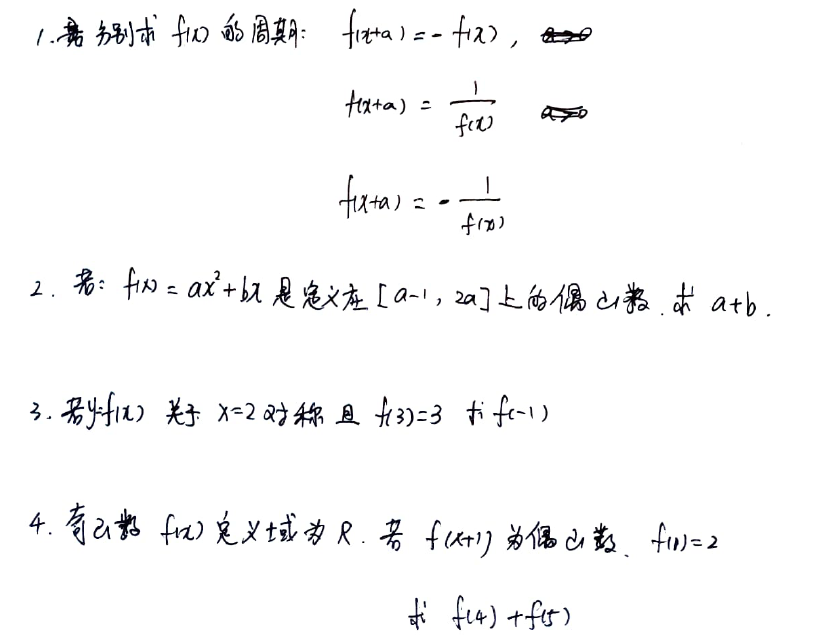 1. 分别求 f(x) 的周期: f(x+a) = - f(x),
f(x+a) = 1/f(x)
f(x+a) = - 1/f(x)
2. 若: f(x) = ax²+bx 是定义在 [a-1, 2a] 上的偶函数. 求 a+b.
3. 若y=f(x) 关于 x=2 对称 且 f(3)=3 求 f(-1)
4. 奇函数 f(x) 定义域为 R. 若 f(x+1) 为偶函数. f(1)=2
求 f(4)+f(5)